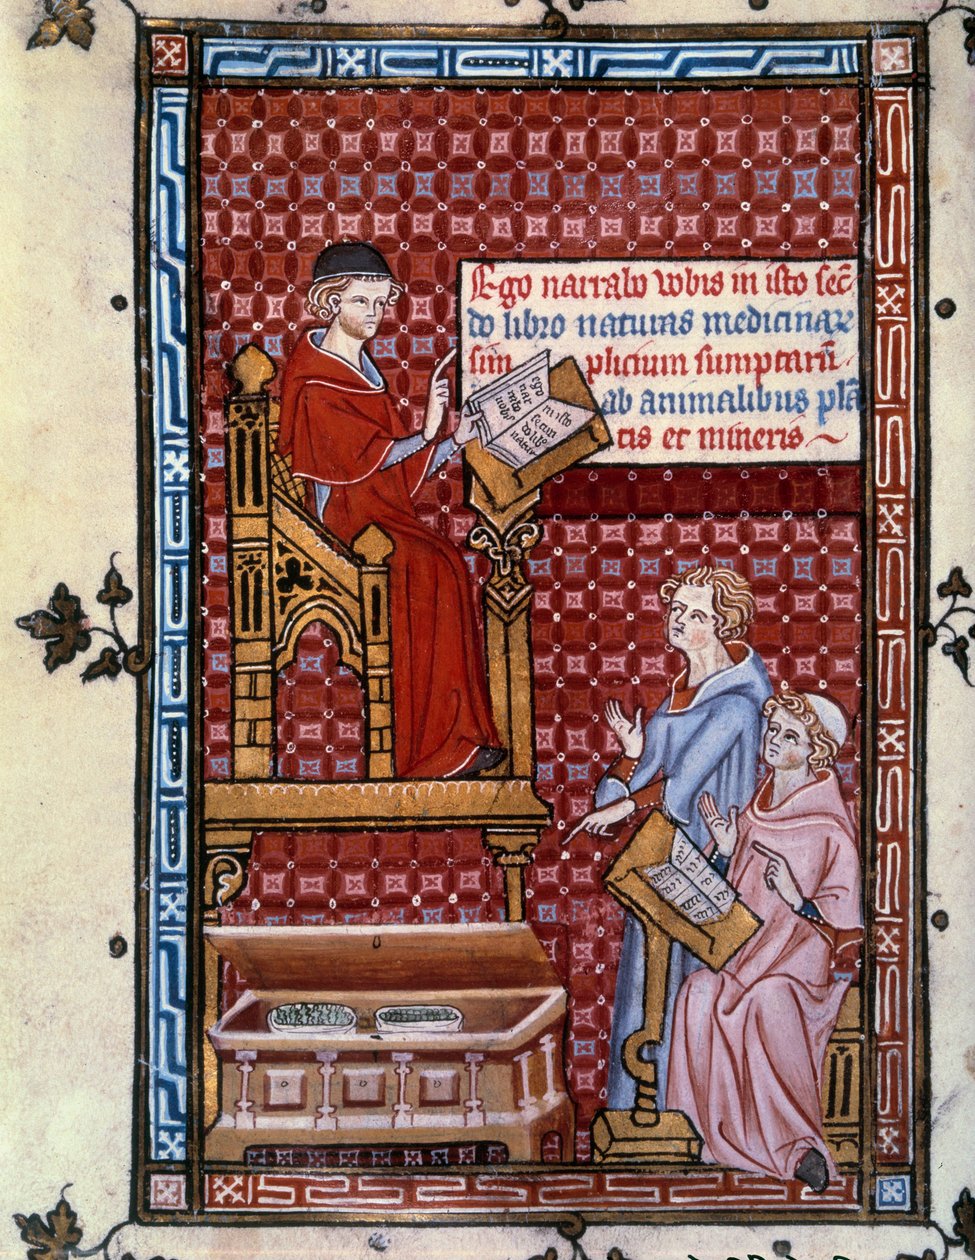 Ego narrabo vobis in isto secū
do libro naturas medicinarū
sim plicium sumptarū
ab animalibus plā
tis et mineris
ego
nar
rabo
vobis
in isto
secun
do libo
natur